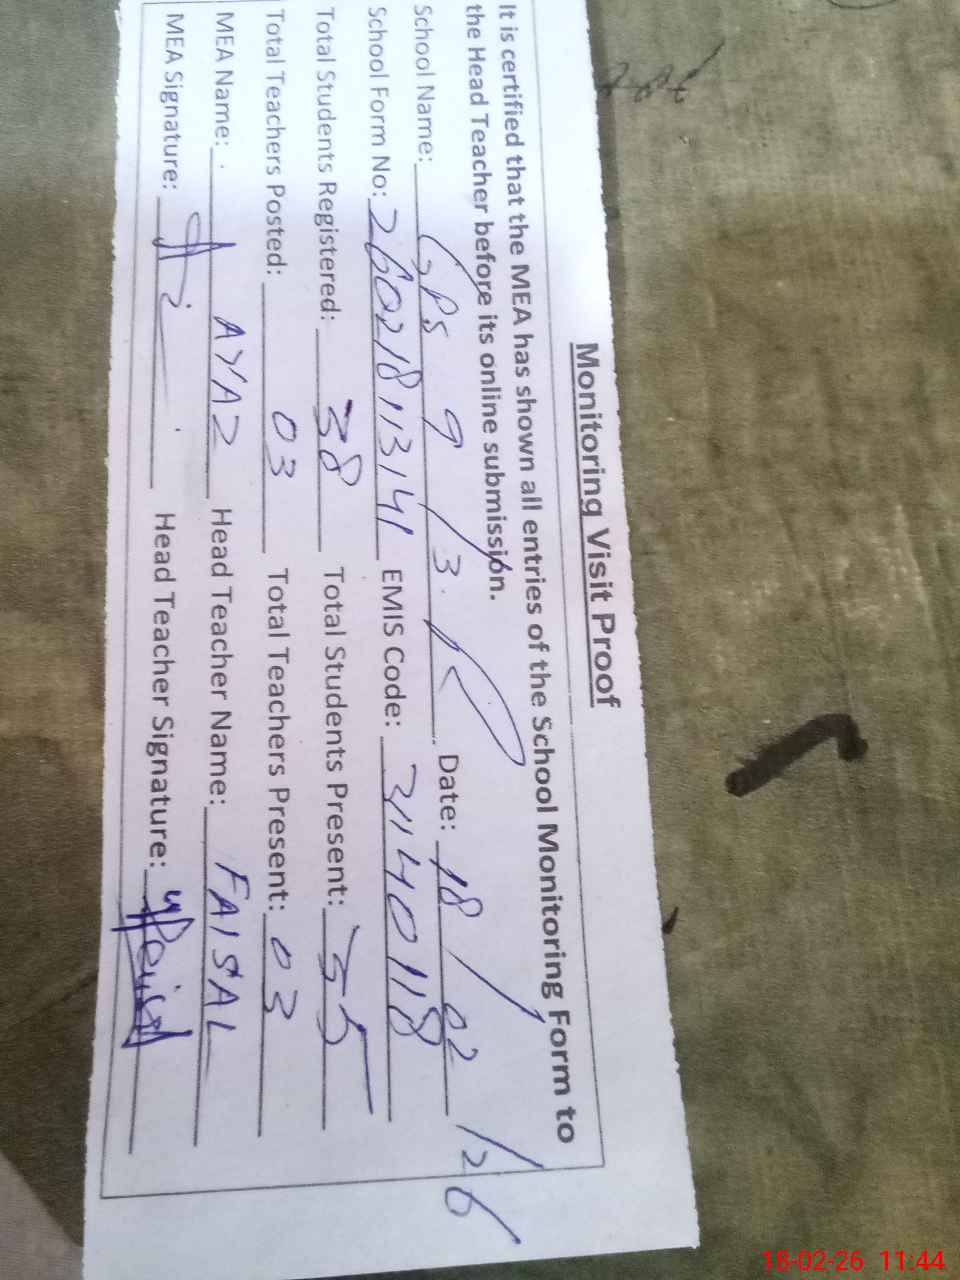 Monitoring Visit Proof
It is certified that the MEA has shown all entries of the School Monitoring Form to
the Head Teacher before its online submission.
School Name: GPS 9/3.R Date: 18/02/26
School Form No: 260218113141 EMIS Code: 31140118
Total Students Registered: 38 Total Students Present: 35
Total Teachers Posted: 03 Total Teachers Present: 03
MEA Name: AYAZ Head Teacher Name: FAISAL
MEA Signature: Head Teacher Signature:
18-02-26 11:44